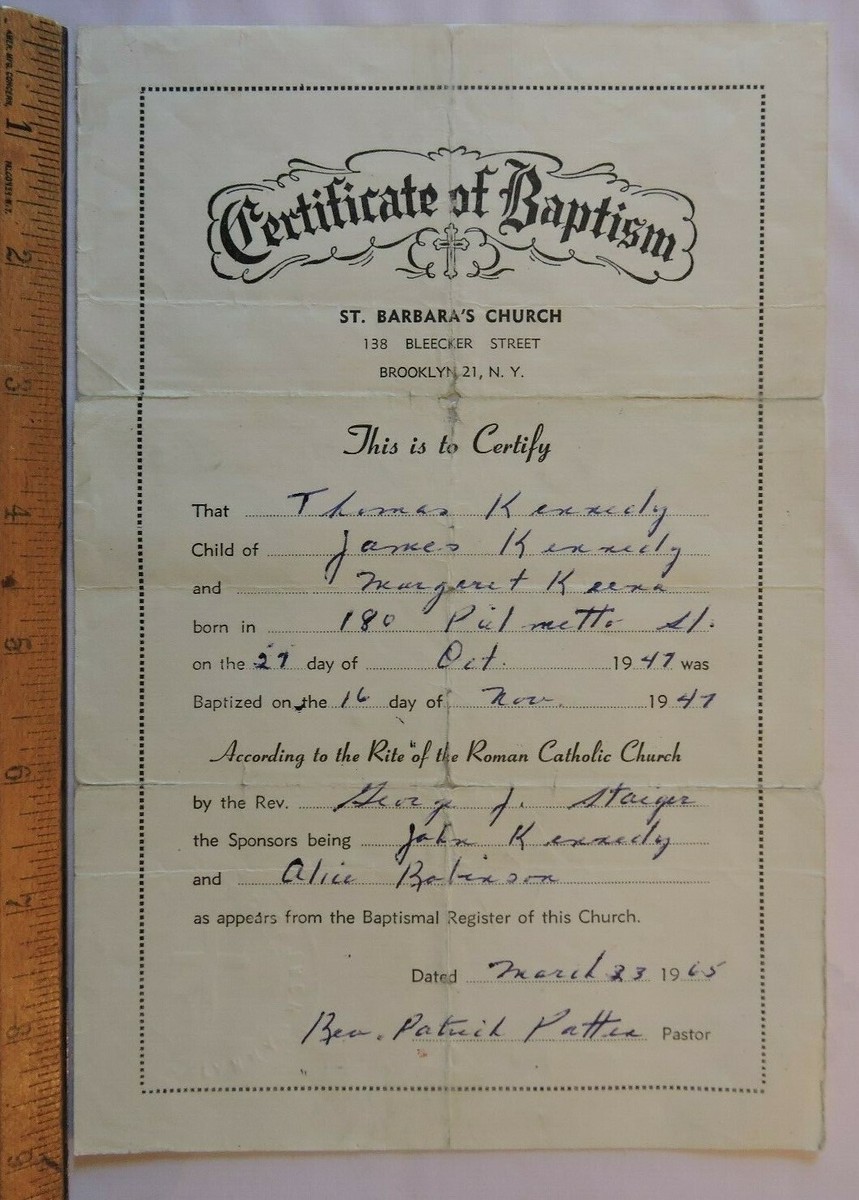 Certificate of Baptism
ST. BARBARA'S CHURCH
138 BLEECKER STREET
BROOKLYN 21, N. Y.
This is to Certify
That Thomas Kennedy
Child of James Kennedy
and Margaret Keena
born in 180 Palmetto St.
on the 27 day of Oct. 1947 was
Baptized on the 16 day of Nov. 1947
According to the Rite of the Roman Catholic Church
by the Rev. George J. Staiger
the Sponsors being John Kennedy
and Alice Robinson
as appears from the Baptismal Register of this Church.
Dated March 23 1965
Rev. Patrick Patten Pastor
1
2
3
4
5
6
7
8
9